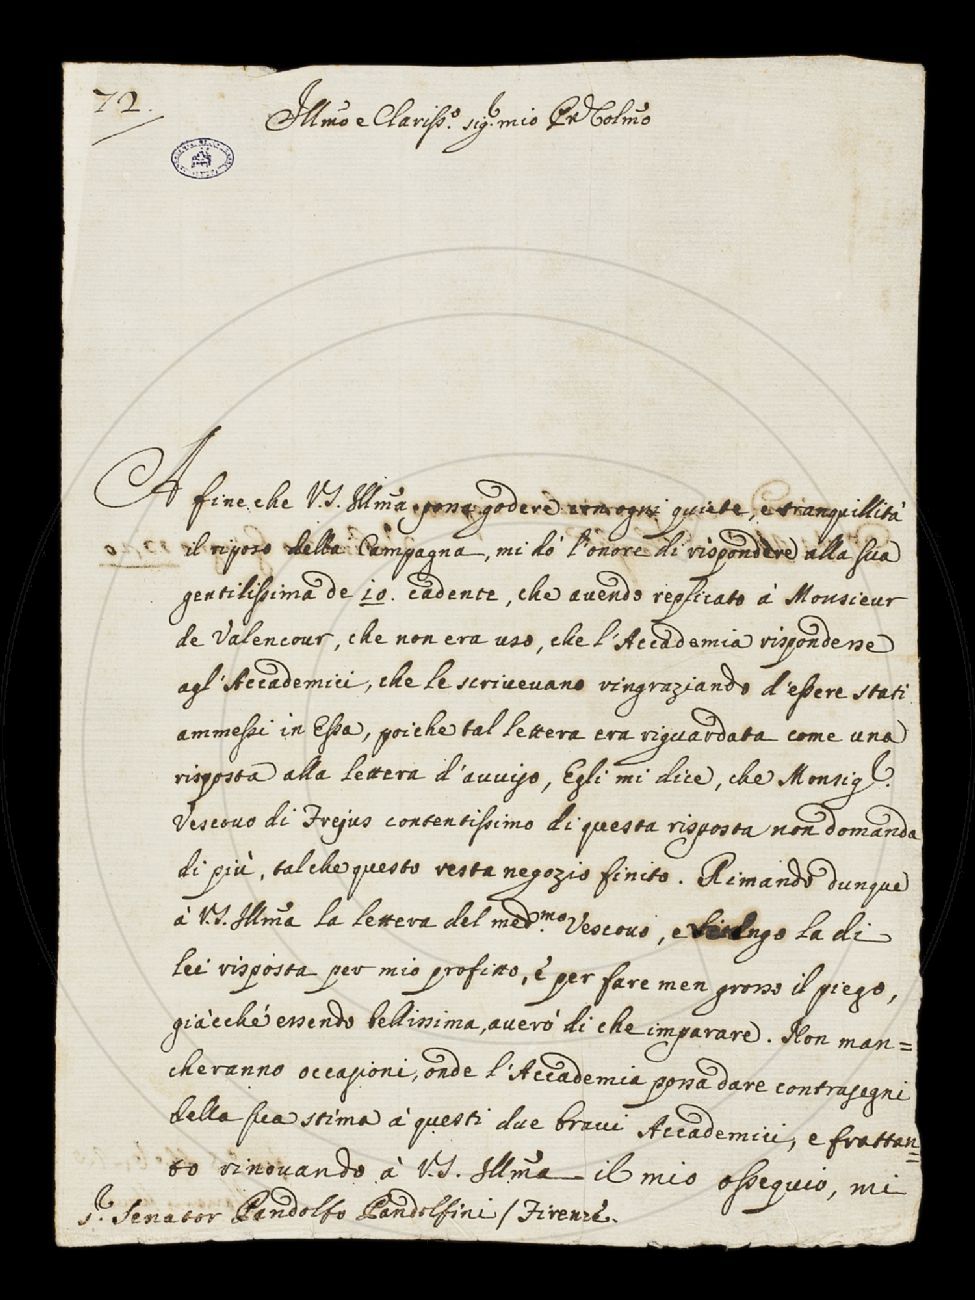 72.
Illmo e Clariss.o sig.r mio Pr̃ Colmo
A fine che V.S. Illma possa godere con ogni quiete, e tranquillità
il riposo della Campagna, mi dò l'onore di rispondere alla sua
gentilissima de 10. cadente, che avendo replicato à Monsieur
de Valencour, che non era uso, che l'Accademia rispondesse
agl'Accademici, che le scrivevano ringraziando d'essere stati
ammessi in Essa, poiche tal lettera era riguardata come una
risposta alla lettera d'avviso, Egli mi dice, che Monsig.r
Vescovo di Frejus contentissimo di questa risposta non domanda
di più, talche questo resta negozio finito. Rimando dunque
à V.S. Illma la lettera del med.mo Vescovo, e la di
lei risposta per mio profitto, e per fare men grosso il piego,
giàcché essendo bellissima, averò di che imparare. Non man=
cheranno occasioni, onde l'Accademia possa dare contrasegni
della sua stima à questi due bravi Accademici, e frattan=
to rinovando à V.S. Illma il mio ossequio, mi
S.r Senator Pandolfo Pandolfini / Firenze.